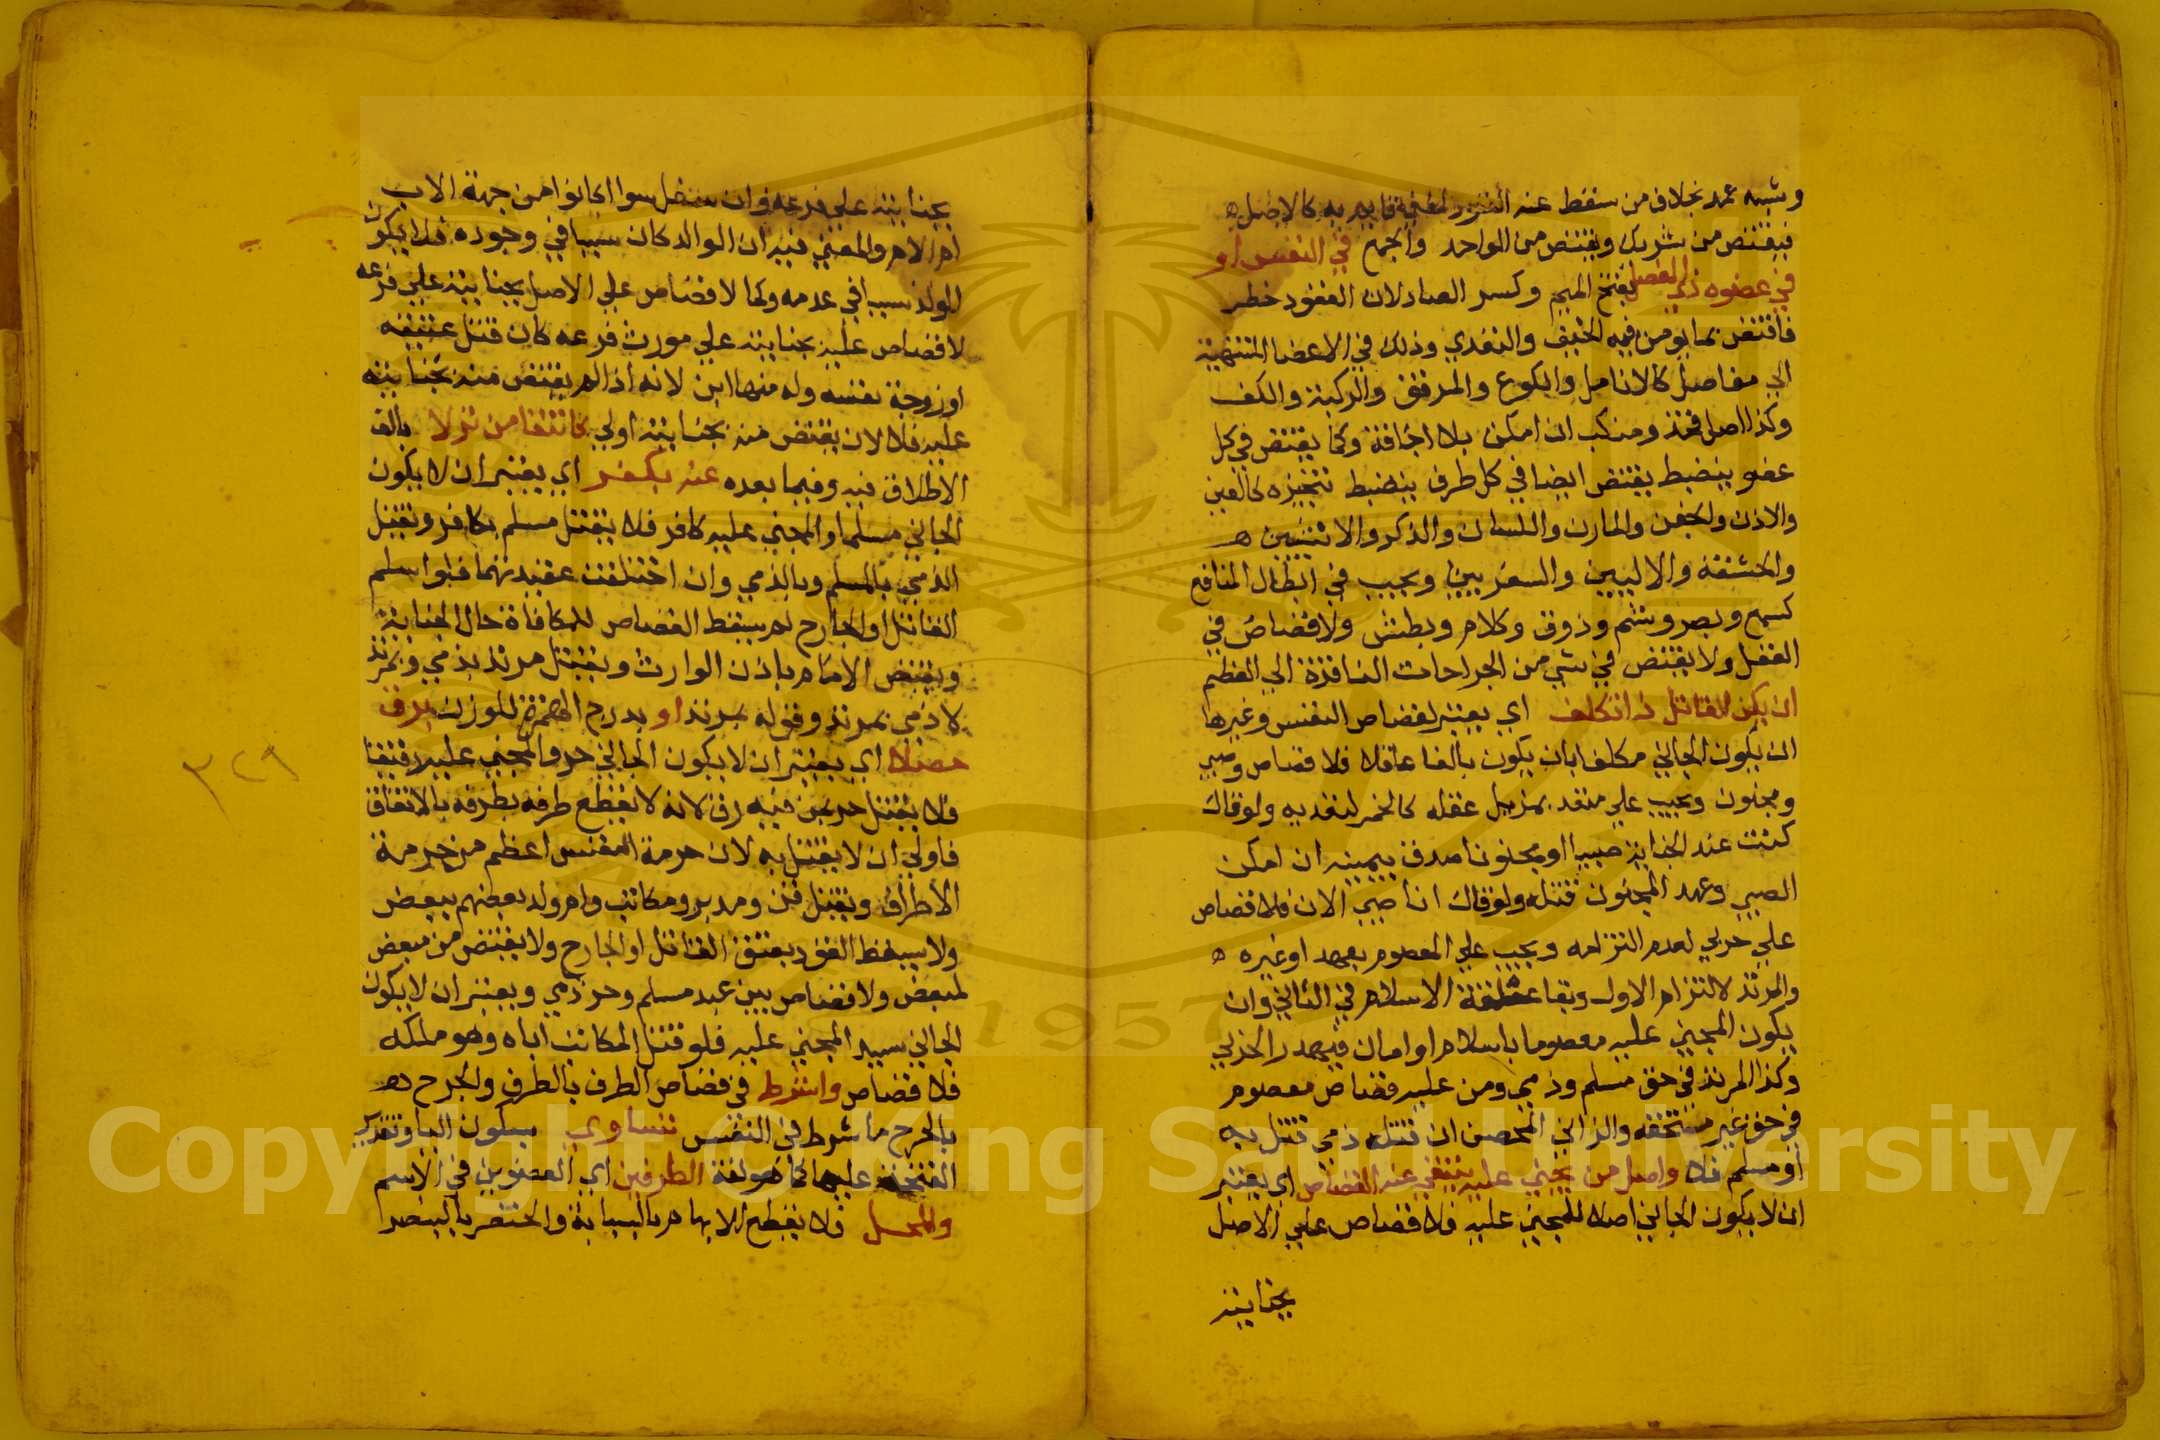 وشبه عمد بخلاف من سقط عنه القود لمعني قايم به كالاصل ه
فيقتص من شريك ويقتص من الواحد والجمع في النفس او
في عضوه ذي المفصل بفتح الميم وكسر الصاد لان القود خطر
فاقتص بما يومن فيه الحيف والتعدي وذلك في الاعضا المنتهية
الي مفاصل كالانامل والكوع والمرفق والركبة والكف
وكذا اصل فخذ ومنكب ان امكن بلا اجافة وكما يقتص في كل
عضو ينضبط يقتص ايضا في كل طرف ينضبط تتميزه كالعين
والاذن والجفن والمارن واللسان والذكر والانثيين ه
والحشفة والاليين والشفرين ويجب في ابطال المنافع
كسمع وبصر وشم وذوق وكلام وبطش ولا قصاص في
العقل ولا يقتص في شي من الجراحات النافذة الي العظم
ان يكن القاتل ذا تكلف اي يعتبر لقصاص النفس وغيرها
ان يكون الجاني مكلفا بان يكون بالغا عاقلا فلا قصاص وصبي
ومجنون ويجب علي متعد بمزيل عقله كالخمر لتعديه ولو قال
كنت عند الجناية صبيا او مجنونا صدق بيمينه ان امكن
الصبي وعهد المجنون قتله ولو قال انا صبي الان فلا قصاص
علي حربي لعدم التزامه ويجب علي المعصوم بعهد او غيره ه
والمرتد لالتزام الاول وبقا علقة الاسلام في الثاني وان
يكون المجني عليه معصوما باسلام او امان فيهدر الحربي
وكذا المرتد في حق مسلم وذمي ومن عليه قصاص معصوم
في حق غير مستحقه والزاني المحصن ان قتله ذمي قتل به
او مسلم فلا واصل من يجني عليه ينتفي عنه القصاص اي يعتبر
ان لا يكون الجاني اصلا للمجني عليه فلا قصاص علي الاصل
بجنايته
بجنايته علي فرعه وان سفل سوا اكانوا من جهة الاب
ام الام والمعني فيه ان الوالد كان سببا في وجوده فلا يكون
الولد سببا في عدمه وكما لا قصاص علي الاصل بجنايته علي فرعه
لا قصاص عليه بجنايته علي مورث فرعه كان قتل عتيقه
او زوجة نفسه وله منها ابن لانه اذا لم يقتص منه بجنايته
عليه فلا لان يقتص منه بجنايته اولي كانتفا من نزلا بالف
الاطلاق فيه وفيما بعده عنه بكفر اي يعتبر ان لا يكون
الجاني مسلما والمجني عليه كافر فلا يقتل مسلم بكافر ويقتل
الذمي بالمسلم وبالذمي وان اختلفت عقيدتهما فلو اسلم
القاتل او الجارح لم يسقط القصاص للمكافاة حال الجناية
ويقتص الامام باذن الوارث ويقتل مرتد بذمي وبمرتد
لا ذمي بمرتد وقوله بمرتد او بدرج الهمزة للوزن برق
حصلا اي يعتبر ان لا يكون الجاني حر والمجني عليه رقيقا
فلا يقتل حر بمن فيه رق لانه لا يقطع طرفه بطرفه بالاتفاق
فاولي ان لا يقتل به لان حرمة النفس اعظم من حرمة
الاطراف ويقتل قن ومدبر ومكاتب وام ولد بعضهم ببعض
ولا يسقط القود بعتق القاتل او الجارح ولا يقتص من مبعض
لمبعض ولا قصاص بين عبد مسلم وحر ذمي ويعتبر ان لا يكون
الجاني سيد المجني عليه فلو قتل المكاتب اباه وهو ملكه
فلا قصاص واشترط في قصاص الطرف بالطرف والجرح ه
بالجرح ما شرط في النفس تساوي بسكون اليا وتقدير
الفتحة عليها كما هو لغة الطرفين اي العضوين في الاسم
والمحل فلا يقطع الابهام بالسبابة والخنصر بالبنصر
٣٢٩
Copyright © King Saud University
1957